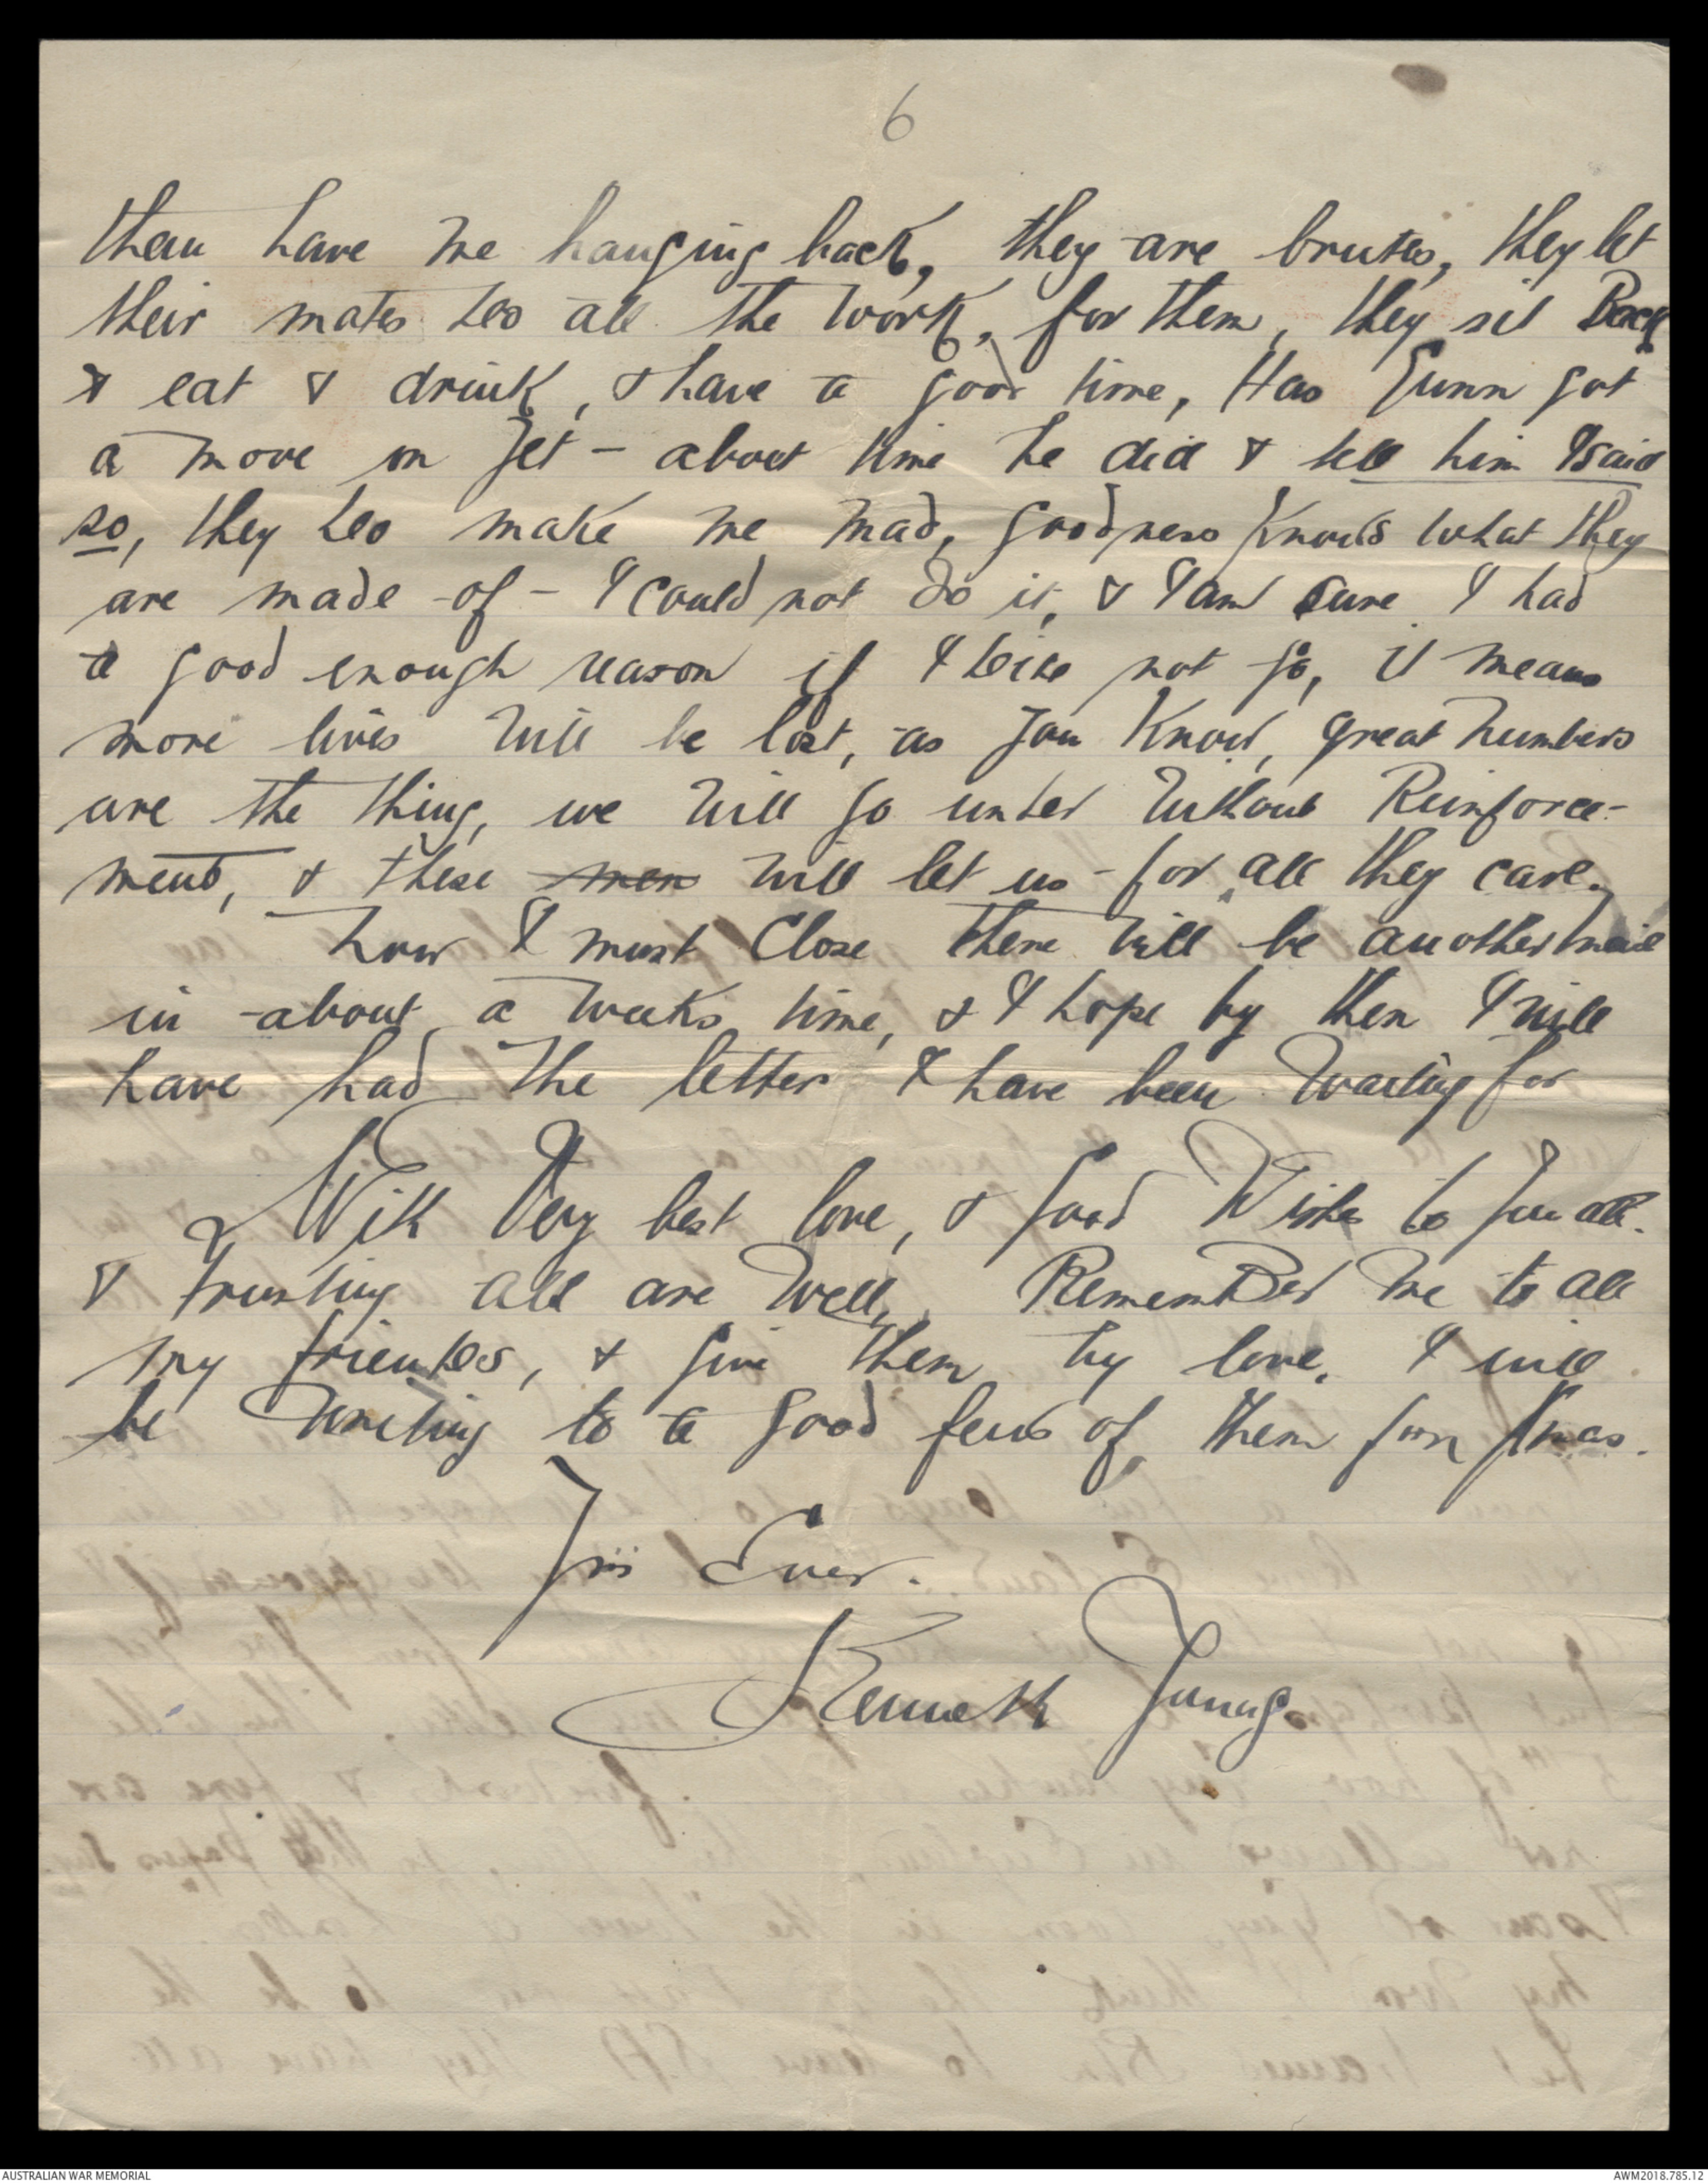 6
than have me hanging back, they are brutes, they let
their mates do all the work, for them, they sit Back
& eat & drink, & have a good time, Has Gunn got
a move on yet - about time he did & tell him I said
so, they do make me mad, goodness knows what they
are made of - I could not do it, & I am sure I had
a good enough reason if I did not go, it means
more lives will be lost, as you know, great numbers
are the thing, we will go under without Reinforce-
ment, & these men will let us - for all they care.
Now I must Close there will be another mail
in about a weeks time, & I hope by then I will
have had the letter I have been waiting for
With Very best love, & good Wishes to you all.
& trusting all are well, Remember me to all
my friends, & give them my love. I will
be writing to a good few of them for Xmas.
Yrs Ever.
Kenneth Young.
AUSTRALIAN WAR MEMORIAL
AWM2018.785.12